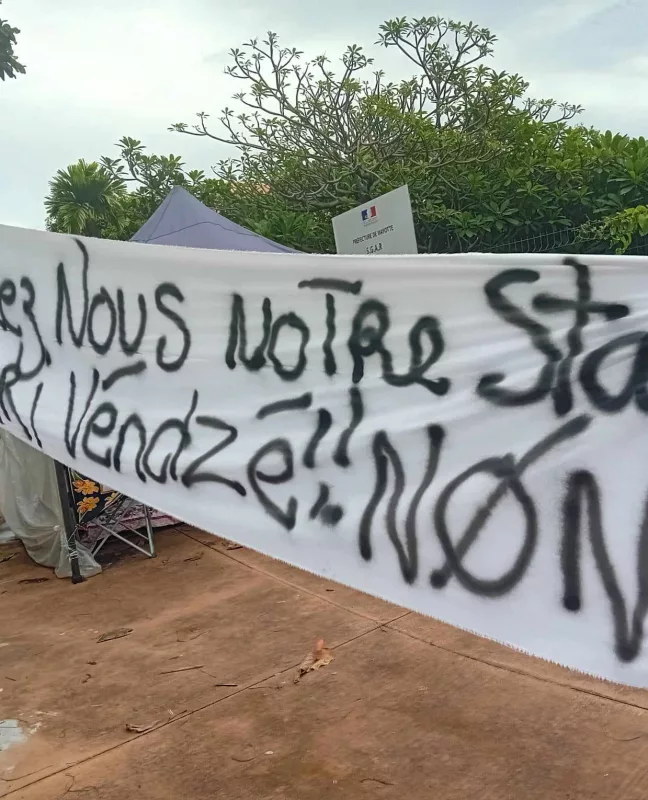 PRÉFECTURE DE MAYOTTE
S.G.A.R
ez Nous Notre Sta
Vendzé!! NON